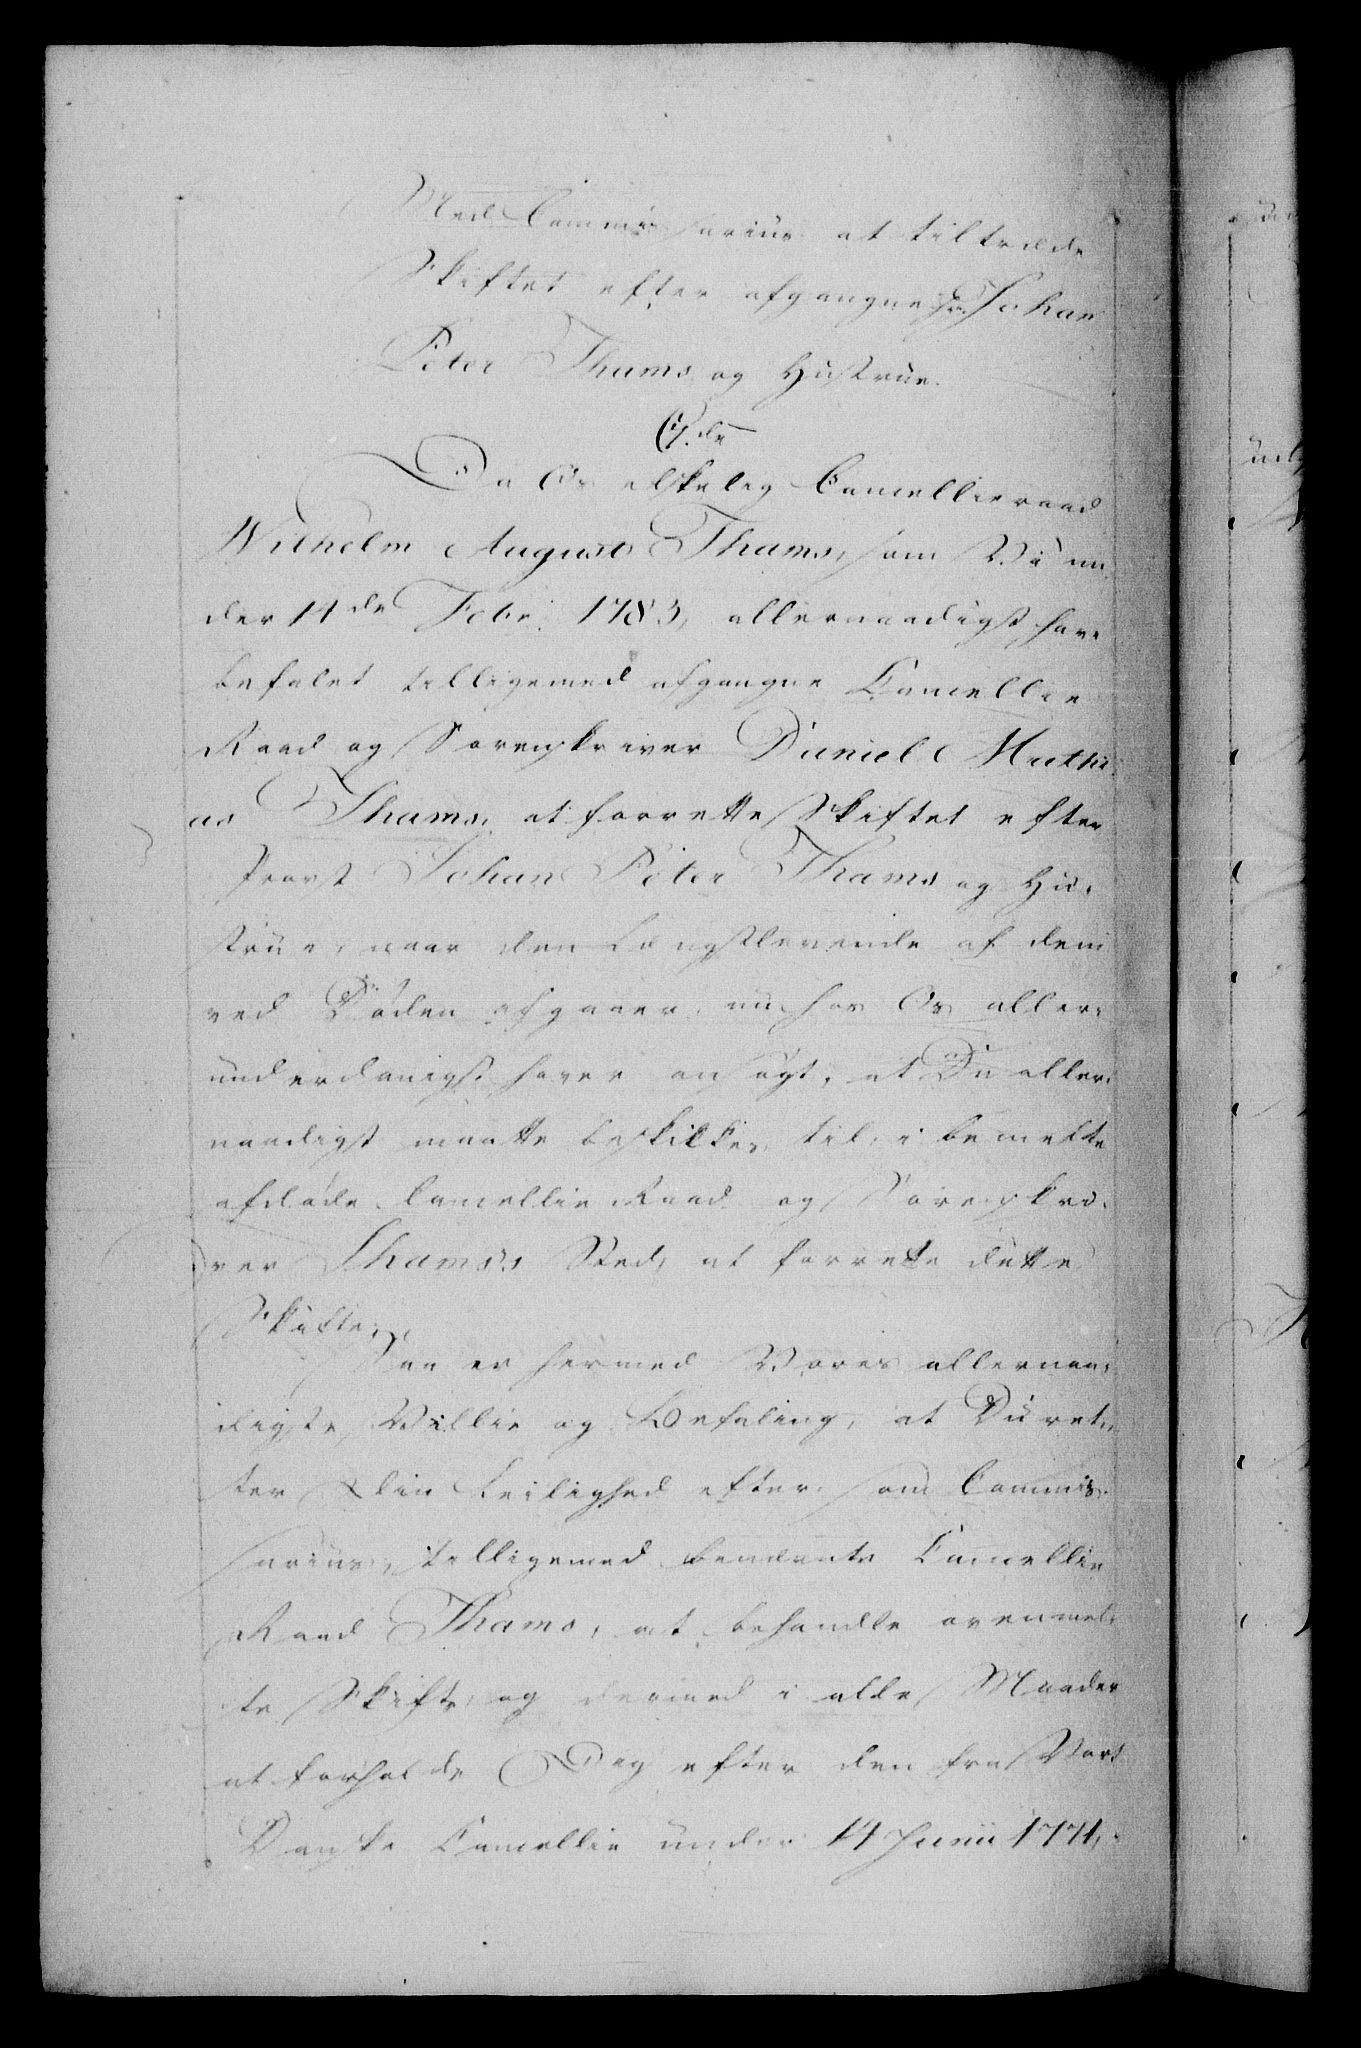 Med Commissarius at tiltræde
Skiftet efter afgangne Hr. Johan
Peter Thams og Hustrue.
C. 7. de
Da Os elskelig Cancellieraad
Wilhelm August Thams, som Vi un
der 14de Febr. 1783, allernaadigst have
befalet tilligemed afgangne Cancellie
Raad og Sorenskriver Daniel Mathi
as Thams, at forrette Skiftet efter
Provst Johan Peter Thams og Hu-
strue, naar den Længstlevende af dem
ved Døden afgaaer, nu hos Os aller-
underdanigst haver ansøgt, at Du aller-
naadigst maatte beskikkes til, i bemelte
afdøde Cancellie Raad og Sorenskri-
ver Thams's Sted, at forrette dette
Skifte;
Saa er hermed Vores allernaa-
digste Villie og Befaling, at Du ret-
ter din Leilighed efter som Commis-
sarius, tilligemed benævnte Cancellie
Raad Thams, at behandle ovenmel-
te Skifte, og dermed i alle Maader
at forholde Dig efter den fra Vort
Danske Cancellie under 14 Junii 1771,